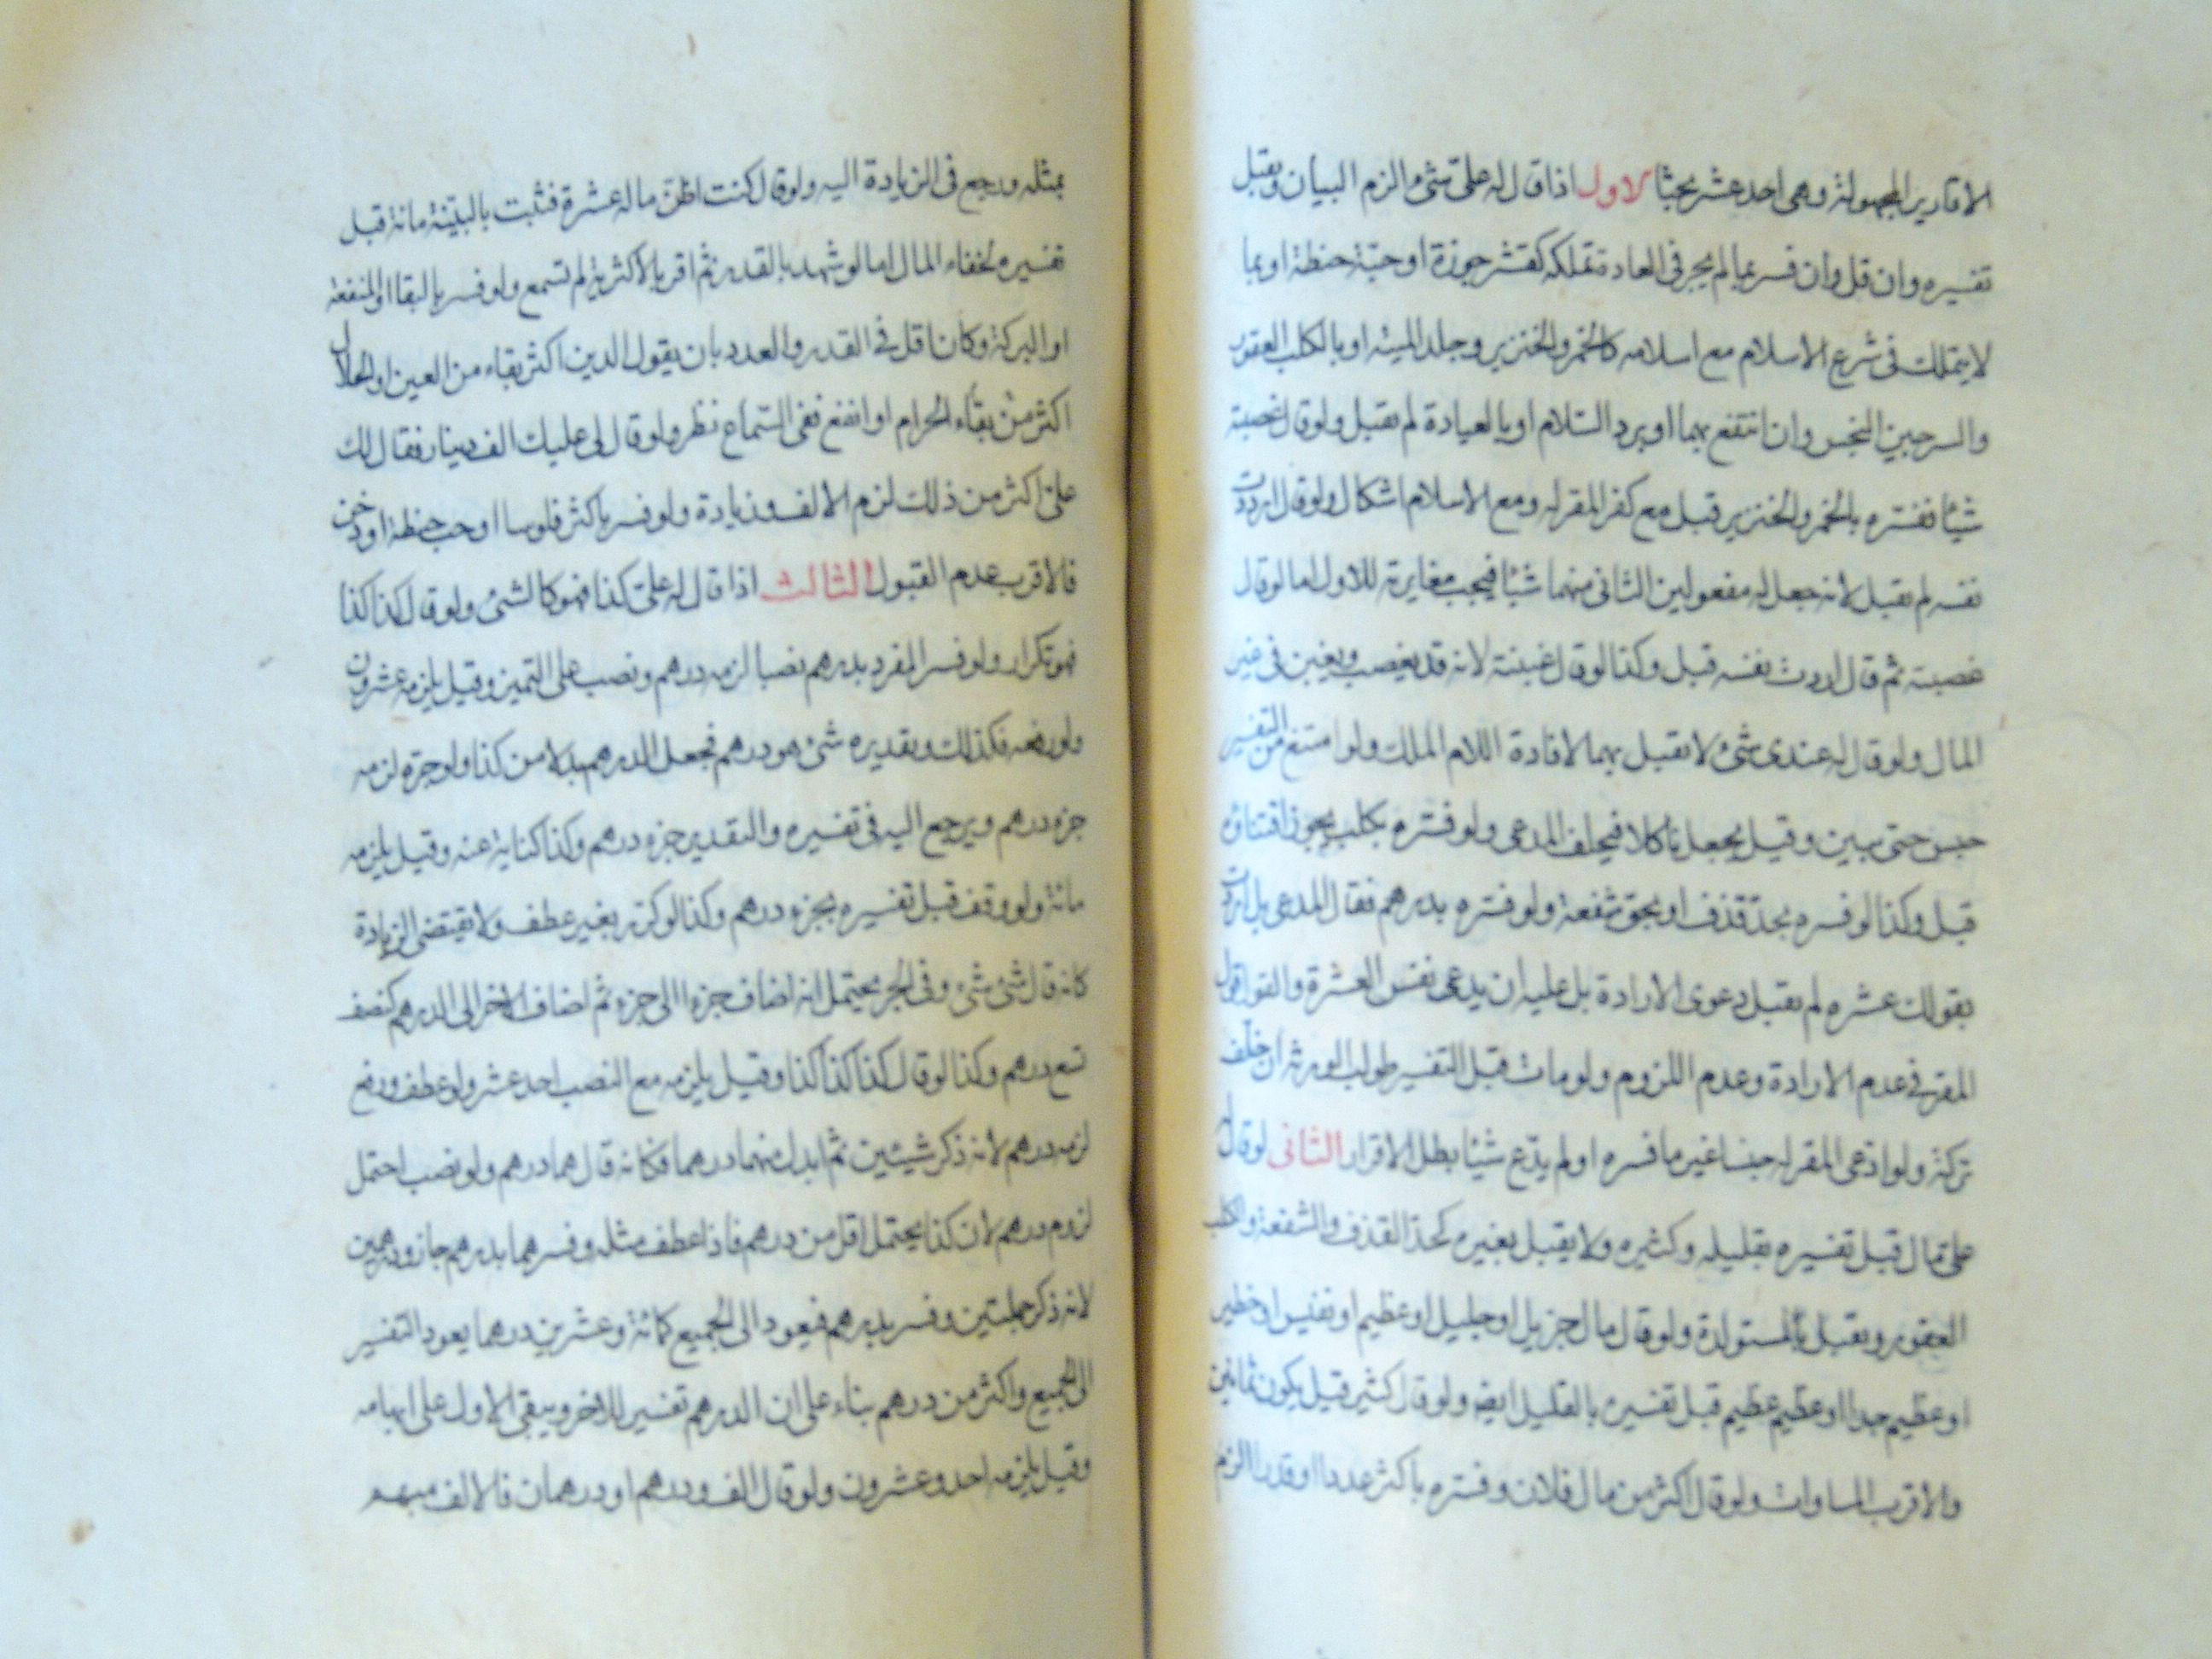 الاقارير المجهولة وهى احد عشر بحثا الاول اذا قال له على شئ والزم البيان ويقبل
تفسيره وان قل وان فسر بما لم يجر فى العادة تملكه كقشر جوزة او حبة حنطة او بما
لا يتملك فى شرع الاسلام مع اسلامه كالخمر والخنزير وجلد الميته او بالكلب العقور
والسرجين النجس وان انتفع بهما او برد السلام او بالعيادة لم يقبل ولو قال غصبته
شيئا ففسره بالخمر والخنزير قبل مع كفر المقر له ومع الاسلام اشكال ولو قال اردت
نفسه لم يقبل لانه جعل له مفعولين الثانى منهما شيئا فيجب مغايرته للاول اما لو قال
غصبته ثم قال اردت نفسه قبل وكذا لو قال غبنته لانه قد يغصب ويغبن فى غير
المال ولو قال له عندى شئ لا يقبل بهما لافادة اللام الملك ولو امتنع من التفسير
حبس حتى يبين وقيل يجعل ناكلا فيحلف المدعى ولو فسره بكلب يجوز اقتناؤه
قبل وكذا لو فسره بحد قذف او بحق شفعة ولو فسره بدرهم فقال المدعى بل اردت
بقولك عشره لم يقبل دعوى الارادة بل عليه ان يدعى نفس العشرة والقول قول
المقر فى عدم الارادة وعدم اللزوم ولو مات قبل التفسير طولب الورثه ان خلف
تركة ولو ادعى المقر له جنسا غير ما فسره او لم يدع شيئا بطل الاقرار الثانى لو قال
على مال قبل تفسيره بقليله وكثيره ولا يقبل بغيره كحد القذف والشفعة والكلب
العقور ويقبل بالمستولدة ولو قال مال جزيل او جليل او عظيم او نفيس او خطير
او عظيم جدا او عظيم عظيم قبل تفسيره بالقليل ايضا ولو قال كثير قيل يكون ثمانين
والاقرب المساوات ولو قال اكثر من مال فلان وفسره باكثر عددا او قدرا الزم
بمثله ورجع فى الزيادة اليه ولو قال كنت اظن ماله عشرة فثبت بالبينة مائة قبل
تفسيره لخفاء المال اما لو شهد بالقدر ثم اقر بالاكثرية لم تسمع ولو فسر بالبقا او المنفعة
او البركة وكان اقل فى القدر والعدد بان يقول الدين اكثر بقاء من العين او الحلال
اكثر من بقاء الحرام او انفع ففى السماع نظر ولو قال لى عليك الف دينار فقال لك
على اكثر من ذلك لزم الالف وزيادة ولو فسر باكثر فلوسا او حب حنطة او دخن
فالاقرب عدم القبول الثالث اذا قال له على كذا فهو كالشئ ولو قال كذا كذا
فهو تكرار ولو فسر المفرد بدرهم نصبا لزمه درهم ونصب على التميز وقيل يلزمه عشرون
ولو رفعه فكذلك وتقديره شئ هو درهم فجعل الدرهم بدلا من كذا ولو جره لزمه
جزء درهم ويرجع اليه فى تفسيره والتقدير جزء درهم وكذا كناية عنه وقيل يلزمه
مائة ولو وقف قبل تفسيره بجزء درهم وكذا لو كرر بغير عطف ولا يقتضى الزيادة
كانه قال شئ شئ وفى الجر يحتمل انه اضاف جزءا الى جزء ثم اضاف الاخر الى الدرهم كنصف
تسع درهم وكذا لو قال كذا كذا كذا وقيل يلزمه مع النصب احد عشر ولو عطف ورفع
لزمه درهم لانه ذكر شيئين ثم ابدل منهما درهما فكانه قال هما درهم ولو نصب احتمل
لزوم درهم لان كذا يحتمل اقل من درهم فاذا عطف مثله وفسرهما بدرهم جاز ودرهمين
لانه ذكر جملتين وفسر بدرهم فيعود الى الجميع كمائة وعشرين درهما يعود التفسير
الى الجميع واكثر من درهم بناء على ان الدرهم تفسير للاخر ويبقى الاول على ابهامه
وقيل يلزمه احد وعشرون ولو قال الف ودرهم او درهمان فالالف مبهم